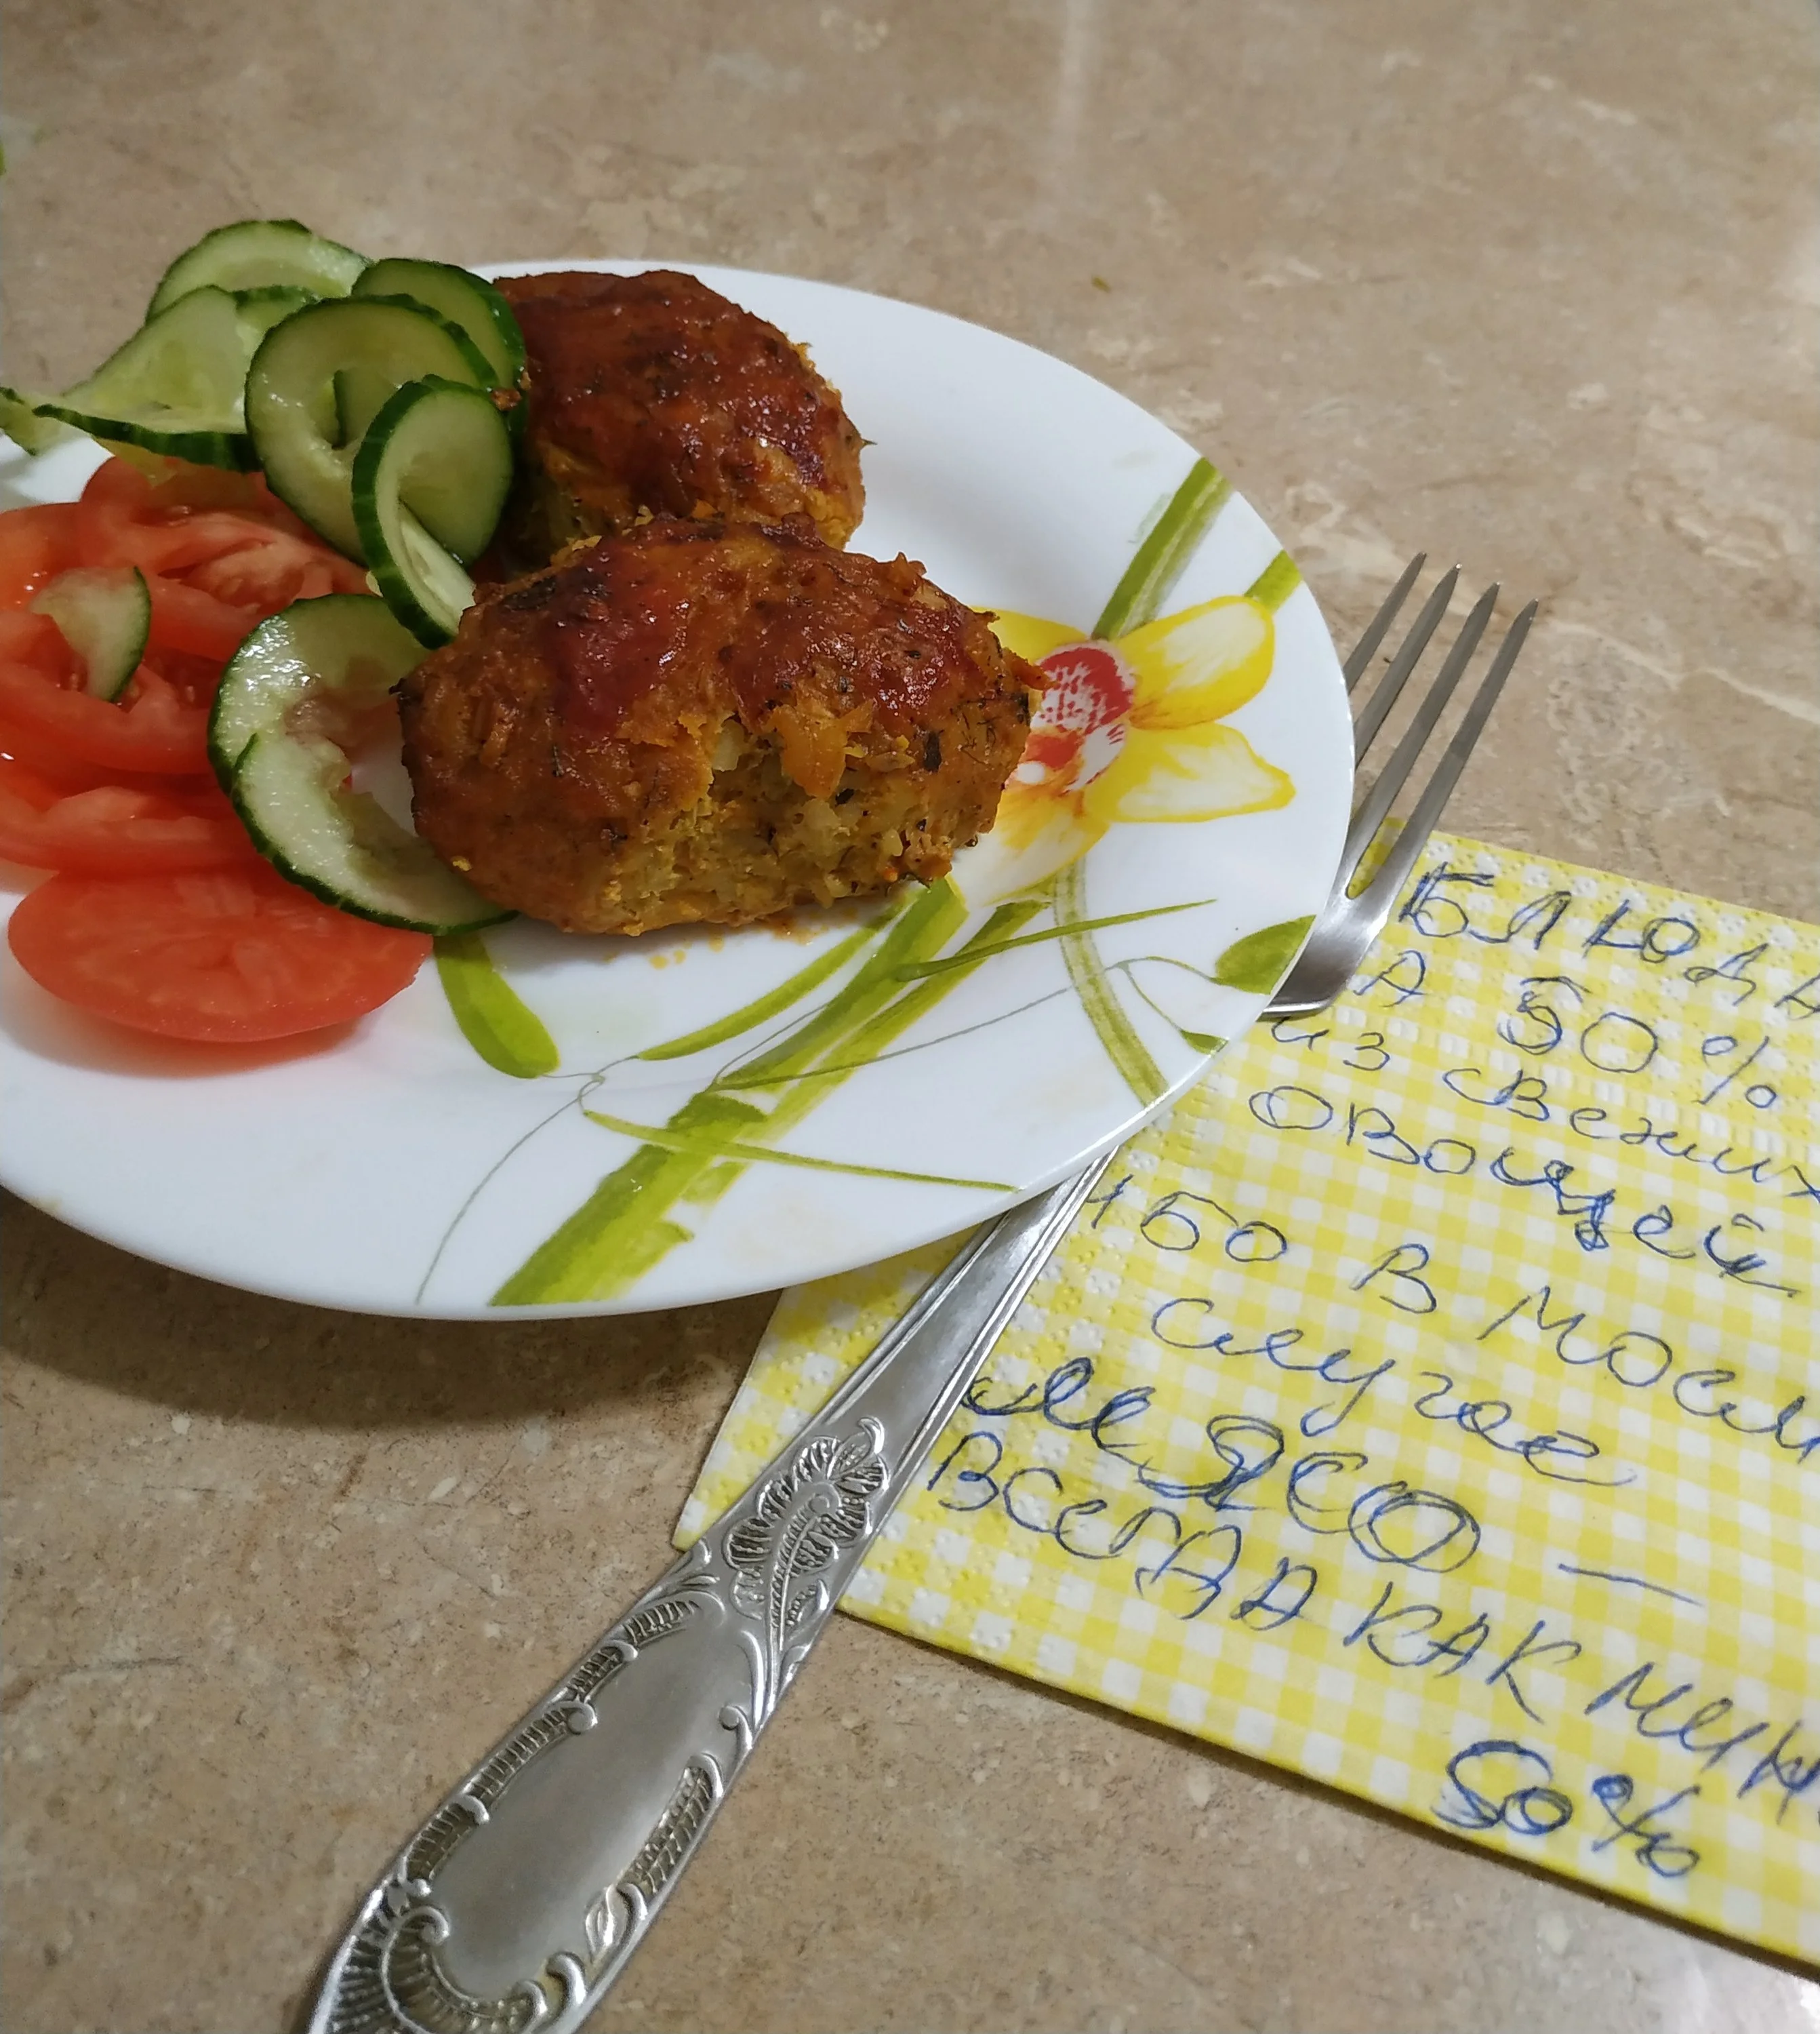 БЛЮДА
А 50%
из свежих
овощей
ибо в моем
случае
мясо —
всегда как мин
50%